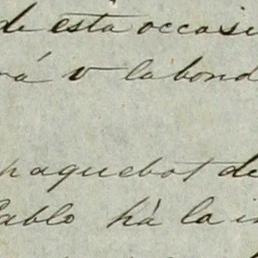 de esta occasi
rá v la bond
paquebot de
Pablo hà la i